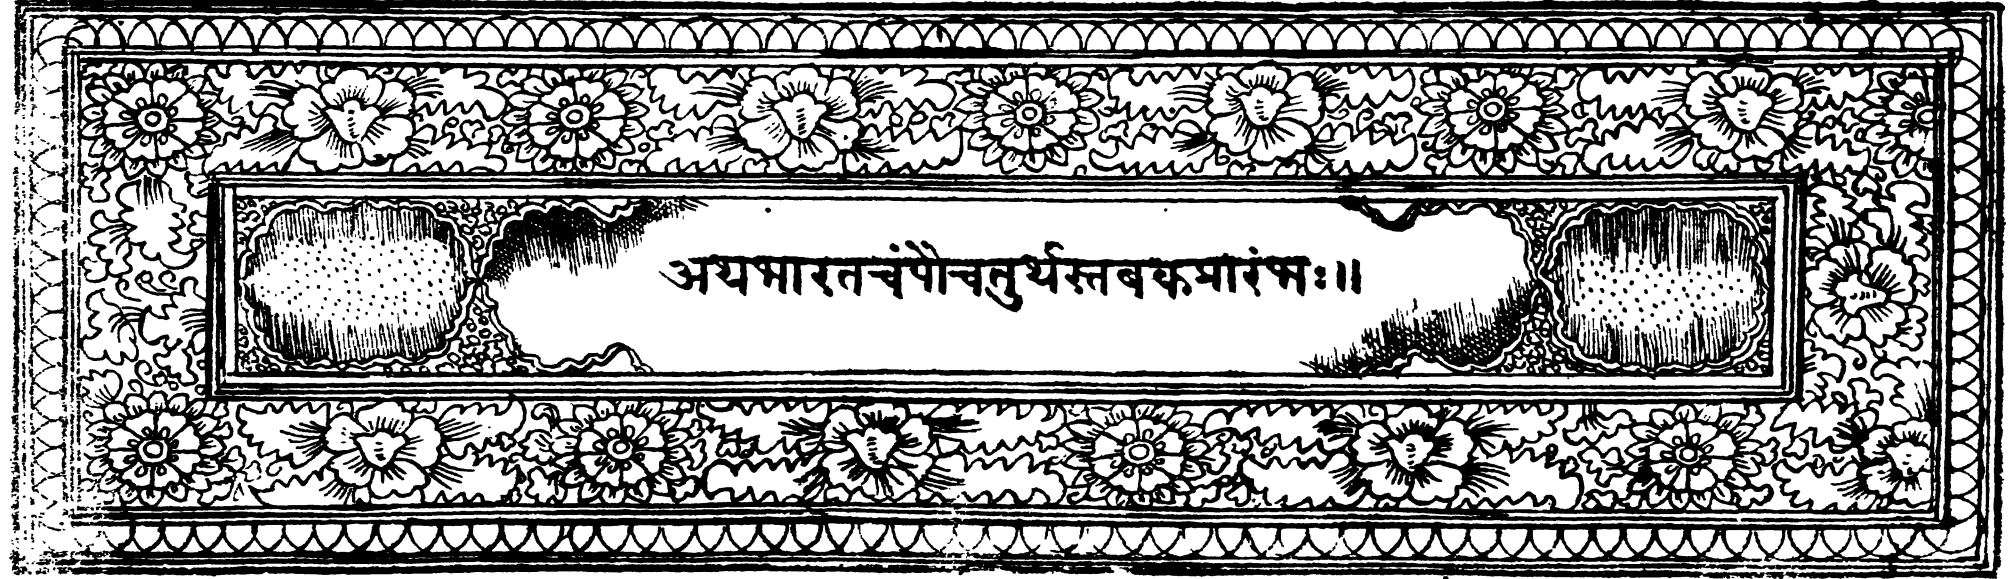 अथभारतचंपौचतुर्थस्तबकप्रारंभः॥